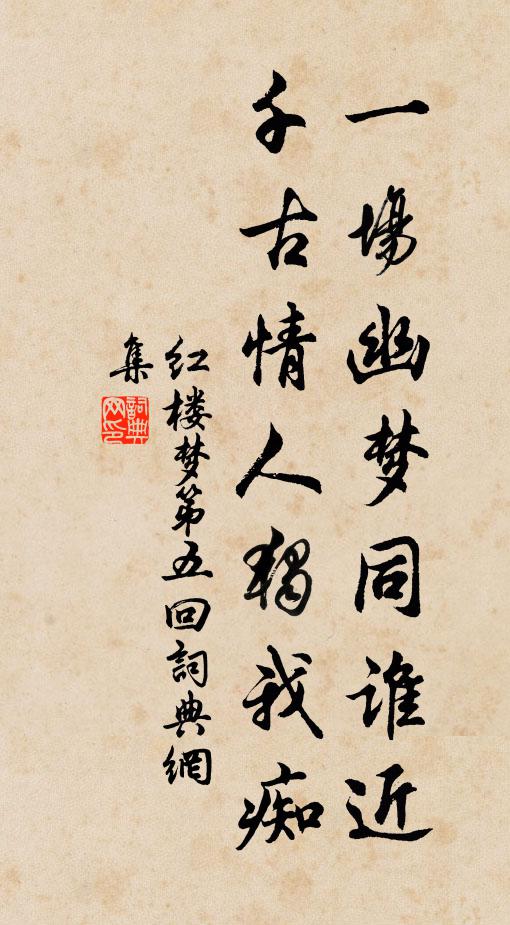 一場幽梦同谁近
千古情人獨我痴
红楼梦第五回詞典網
集
詞典
网印